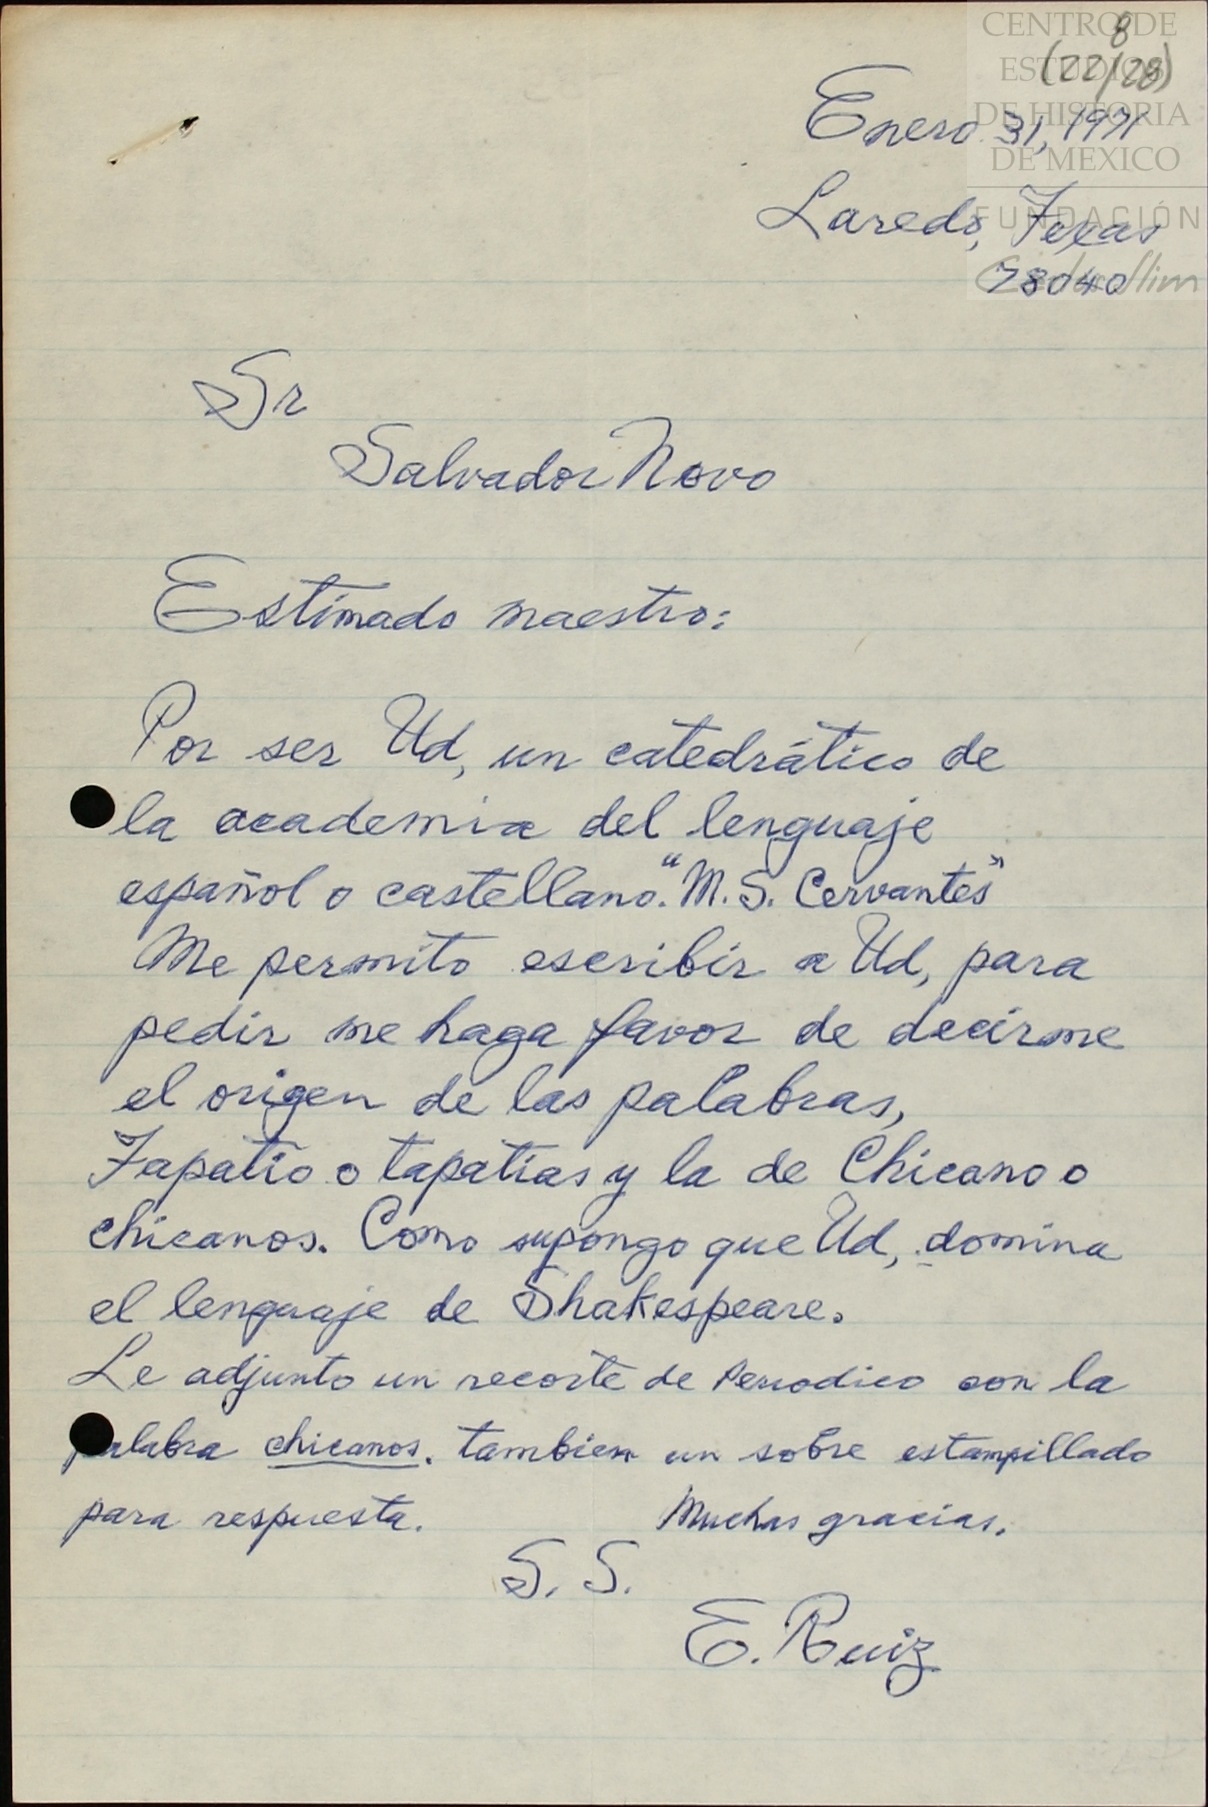 CENTRO DE
ESTUDIOS
DE HISTORIA
DE MEXICO
FUNDACIÓN
8
(22/28)
Enero 31, 1971
Laredo, Texas
78040
Sr
Salvador Novo
Estimado maestro:
Por ser Ud, un catedrático de
la academia del lenguaje
español o castellano. "M.S. Cervantes"
Me permito escribir a Ud, para
pedir me haga favor de decirme
el origen de las palabras,
Tapatio o tapatias y la de Chicano o
chicanos. Como supongo que Ud, domina
el lenguaje de Shakespeare.
Le adjunto un recorte de Periodico con la
palabra chicanos. tambien un sobre estampillado
para respuesta. Muchas gracias.
S. S.
E. Ruiz